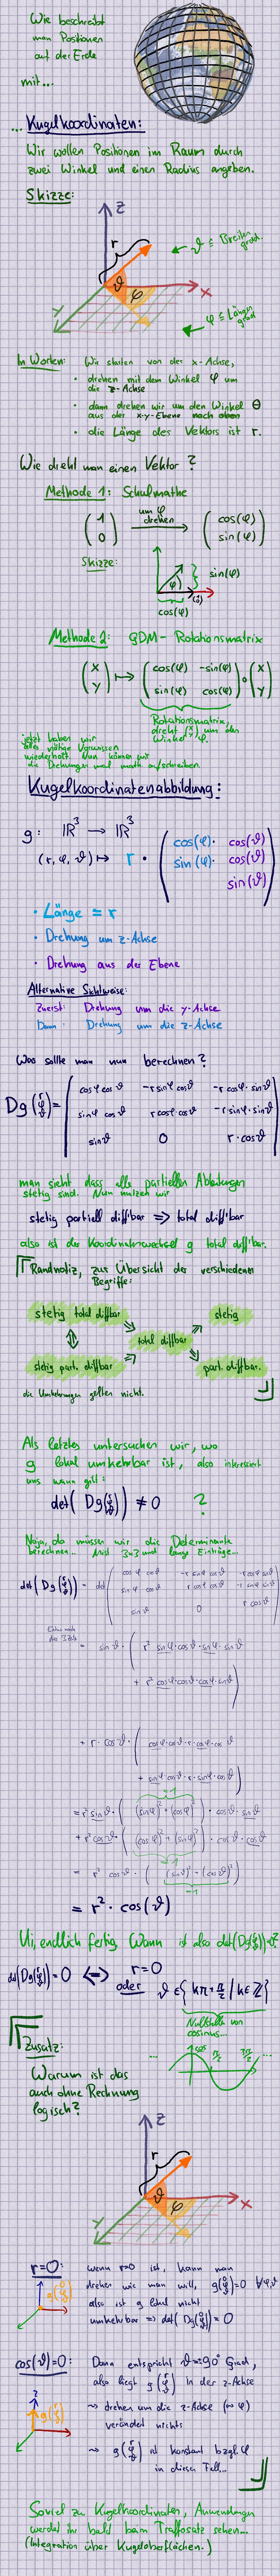 Wie beschreibt
man Positionen
auf der Erde
mit...
... Kugelkoordinaten:
Wir wollen Positionen im Raum durch
zwei Winkel und einen Radius angeben.
Skizze:
z
r
ϑ ≙ Breitengrad.
ϑ
φ
x
y
φ ≙ Längengrad
In Worten: Wir starten von der x-Achse,
• drehen mit dem Winkel φ um
die z-Achse
• dann drehen wir um den Winkel θ
aus der x-y-Ebene nach oben
• die Länge des Vektors ist r.
Wie dreht man einen Vektor?
Methode 1: Schulmathe
(1 0) um φ drehen → (cos(φ) sin(φ))
Skizze:
φ
sin(φ)
cos(φ)
Methode 2: gDM-Rotationsmatrix
(x y) ↦ (cos(φ) -sin(φ) sin(φ) cos(φ)) ∘ (x y)
Rotationsmatrix,
dreht (x y) um den
Winkel φ.
jetzt haben wir
alles nötige Vorwissen
wiederholt. Nun können wir
die Drehungen mal math. aufschreiben.
Kugelkoordinatenabbildung:
g: ℝ³ → ℝ³
(r, φ, ϑ) ↦ r · (cos(φ)· cos(ϑ) sin(φ)· cos(ϑ) sin(ϑ))
• Länge = r
• Drehung um z-Achse
• Drehung aus der Ebene
Alternative Sichtweise:
Zuerst: Drehung um die y-Achse
Dann: Drehung um die z-Achse
Was sollte man nun berechnen?
Dg(r φ ϑ) =
cosφ cosϑ -r sinφ cosϑ -r cosφ · sinϑ
sinφ cosϑ r cosφ cosϑ -r sinφ · sinϑ
sinϑ 0 r · cosϑ
man sieht dass alle partiellen Ableitungen
stetig sind. Nun nutzen wir
stetig partiell diff'bar ⇒ total diff'bar
also ist der Koordinatenwechsel g total diff'bar.
Randnotiz, zur Übersicht der verschiedenen
Begriffe:
stetig total diffbar
stetig
total diffbar
stetig part. diffbar
part. diffbar.
die Umkehrungen gelten nicht.
Als letztes untersuchen wir, wo
g lokal umkehrbar ist, also interessiert
uns wann gilt:
det(Dg(r φ ϑ)) ≠ 0 ?
Naja, da müssen wir die Determinante
berechnen... Mist 3x3 und lange Einträge...
det(Dg(r φ ϑ)) = det
cosφ cosϑ -r sinφ cosϑ -r cosφ sinϑ
sinφ cosϑ r cosφ cosϑ -r sinφ sinϑ
sinϑ 0 r cosϑ
Entw. nach
der 3. Zeile
= sinϑ · ( r² sinφ · cosϑ · sinφ · sinϑ
+ r² cosφ · cosϑ · cosφ · sinϑ )
+ r · cosϑ · ( cosφ · cosϑ · r · cosφ · cosϑ
+ sinφ · cosϑ · r · sinφ cosϑ )
=1
= r² sinϑ · ( (sinφ)² + (cosφ)² ) · cosϑ · sinϑ
+ r² cosϑ · ( (cosφ)² + (sinφ)² ) · cosϑ · cosϑ
=1
= r² cosϑ · ( (sinϑ)² + (cosϑ)² )
=1
= r² · cos(ϑ)
Ui, endlich fertig. Wann ist also det(Dg(r φ ϑ))=0?
det(Dg(r φ ϑ)) = 0 ⇔ r=0
oder ϑ ∈ {kπ + π/2 | k∈ℤ}
Nullstelle von
cosinus...
Zusatz:
Warum ist das
auch ohne Rechnung
logisch?
... cos π/2 3π/2 ...
z
r
ϑ
φ
x
y
r=0: wenn r=0 ist, kann man
drehen wie man will, g(0 φ ϑ)=0 ∀φ,ϑ
also ist g lokal nicht
umkehrbar ⇒ det(Dg(0 φ ϑ)) = 0
cos(ϑ)=0: Dann entspricht ϑ=90 Grad,
also liegt g(r φ ϑ) in der z-Achse
⇝ drehen um die z-Achse (≙ φ)
verändert nichts
⇝ g(r φ ϑ) ist konstant bzgl. φ
in diesem Fall...
Soviel zu Kugelkoordinaten, Anwendungen
werdet ihr bald beim Trafosatz sehen...
(Integration über Kugeloberflächen.)